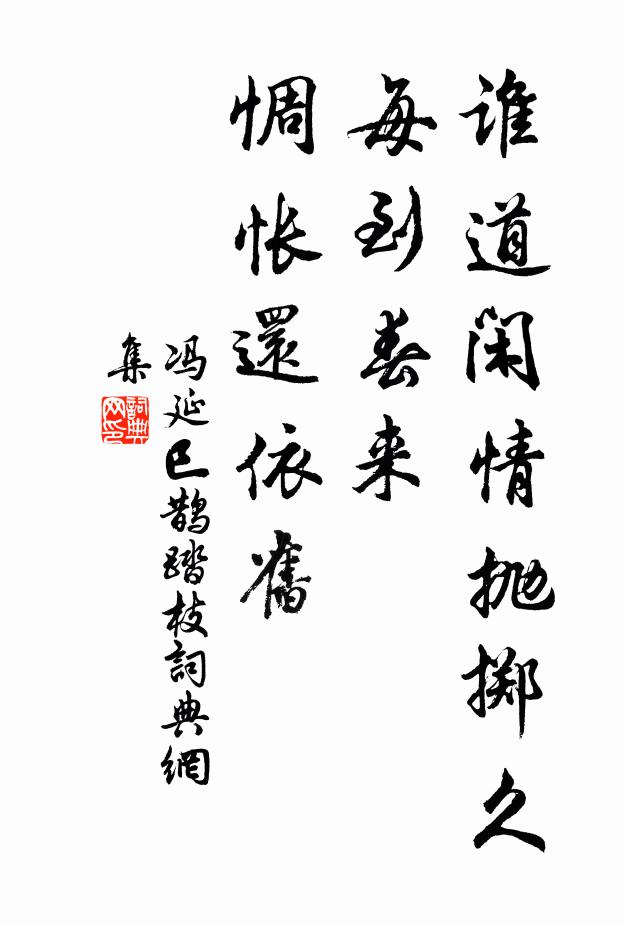 谁道闲情抛掷久
每到春来
惆怅還依舊
冯延巳鹊踏枝詞典網
集
詞典
网印